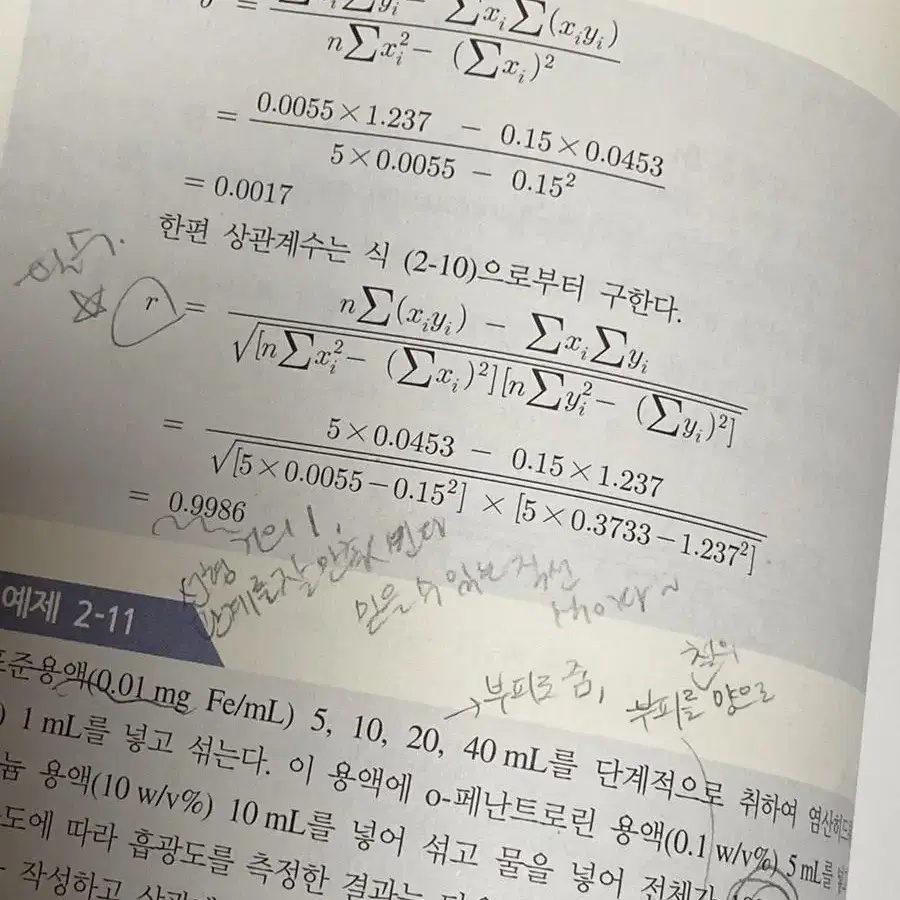 ∑x_i^2∑y_i − ∑x_i∑(x_iy_i)
n∑x_i^2 − (∑x_i)^2
= 0.0055×1.237 − 0.15×0.0453
5×0.0055 − 0.15^2
= 0.0017
한편 상관계수는 식 (2-10)으로부터 구한다.
r = n∑(x_iy_i) − ∑x_i∑y_i
√[n∑x_i^2 − (∑x_i)^2][n∑y_i^2 − (∑y_i)^2]
= 5×0.0453 − 0.15×1.237
√[5×0.0055−0.15^2] × [5×0.3733−1.237^2]
= 0.9986
거의 1.
선형
관계를 잘 만족한다
믿을 수 있는 직선
예제 2-11
철의
→부피로 줌, 부피를 양으로
표준용액(0.01 mg Fe/mL) 5, 10, 20, 40 mL를 단계적으로 취하여 염산히드
) 1 mL를 넣고 섞는다. 이 용액에 o-페난트로린 용액(0.1 w/v%) 5 mL를
용액(10 w/v%) 10 mL를 넣어 섞고 물을 넣어 전체가
도에 따라 흡광도를 측정한 결과는
작성하고